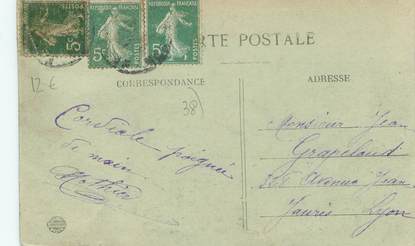 5c POSTES
REPUBLIQUE FRANÇAISE 5c POSTES
REPUBLIQUE FRANÇAISE 5c POSTES
CARTE POSTALE
12 €
CORRESPONDANCE
ADRESSE
38)
Cordiale poignée
de main
Monsieur Jean
Grapeloud
Avenue Jean
Jaurès Lyon